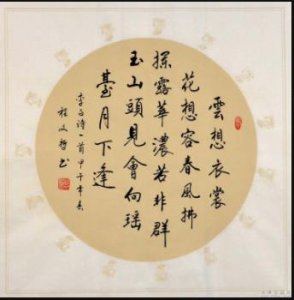 雲想衣裳
花想容春風拂
檻露華濃若非群
玉山頭見會向瑶
臺月下逢
李白詩一首甲午年春